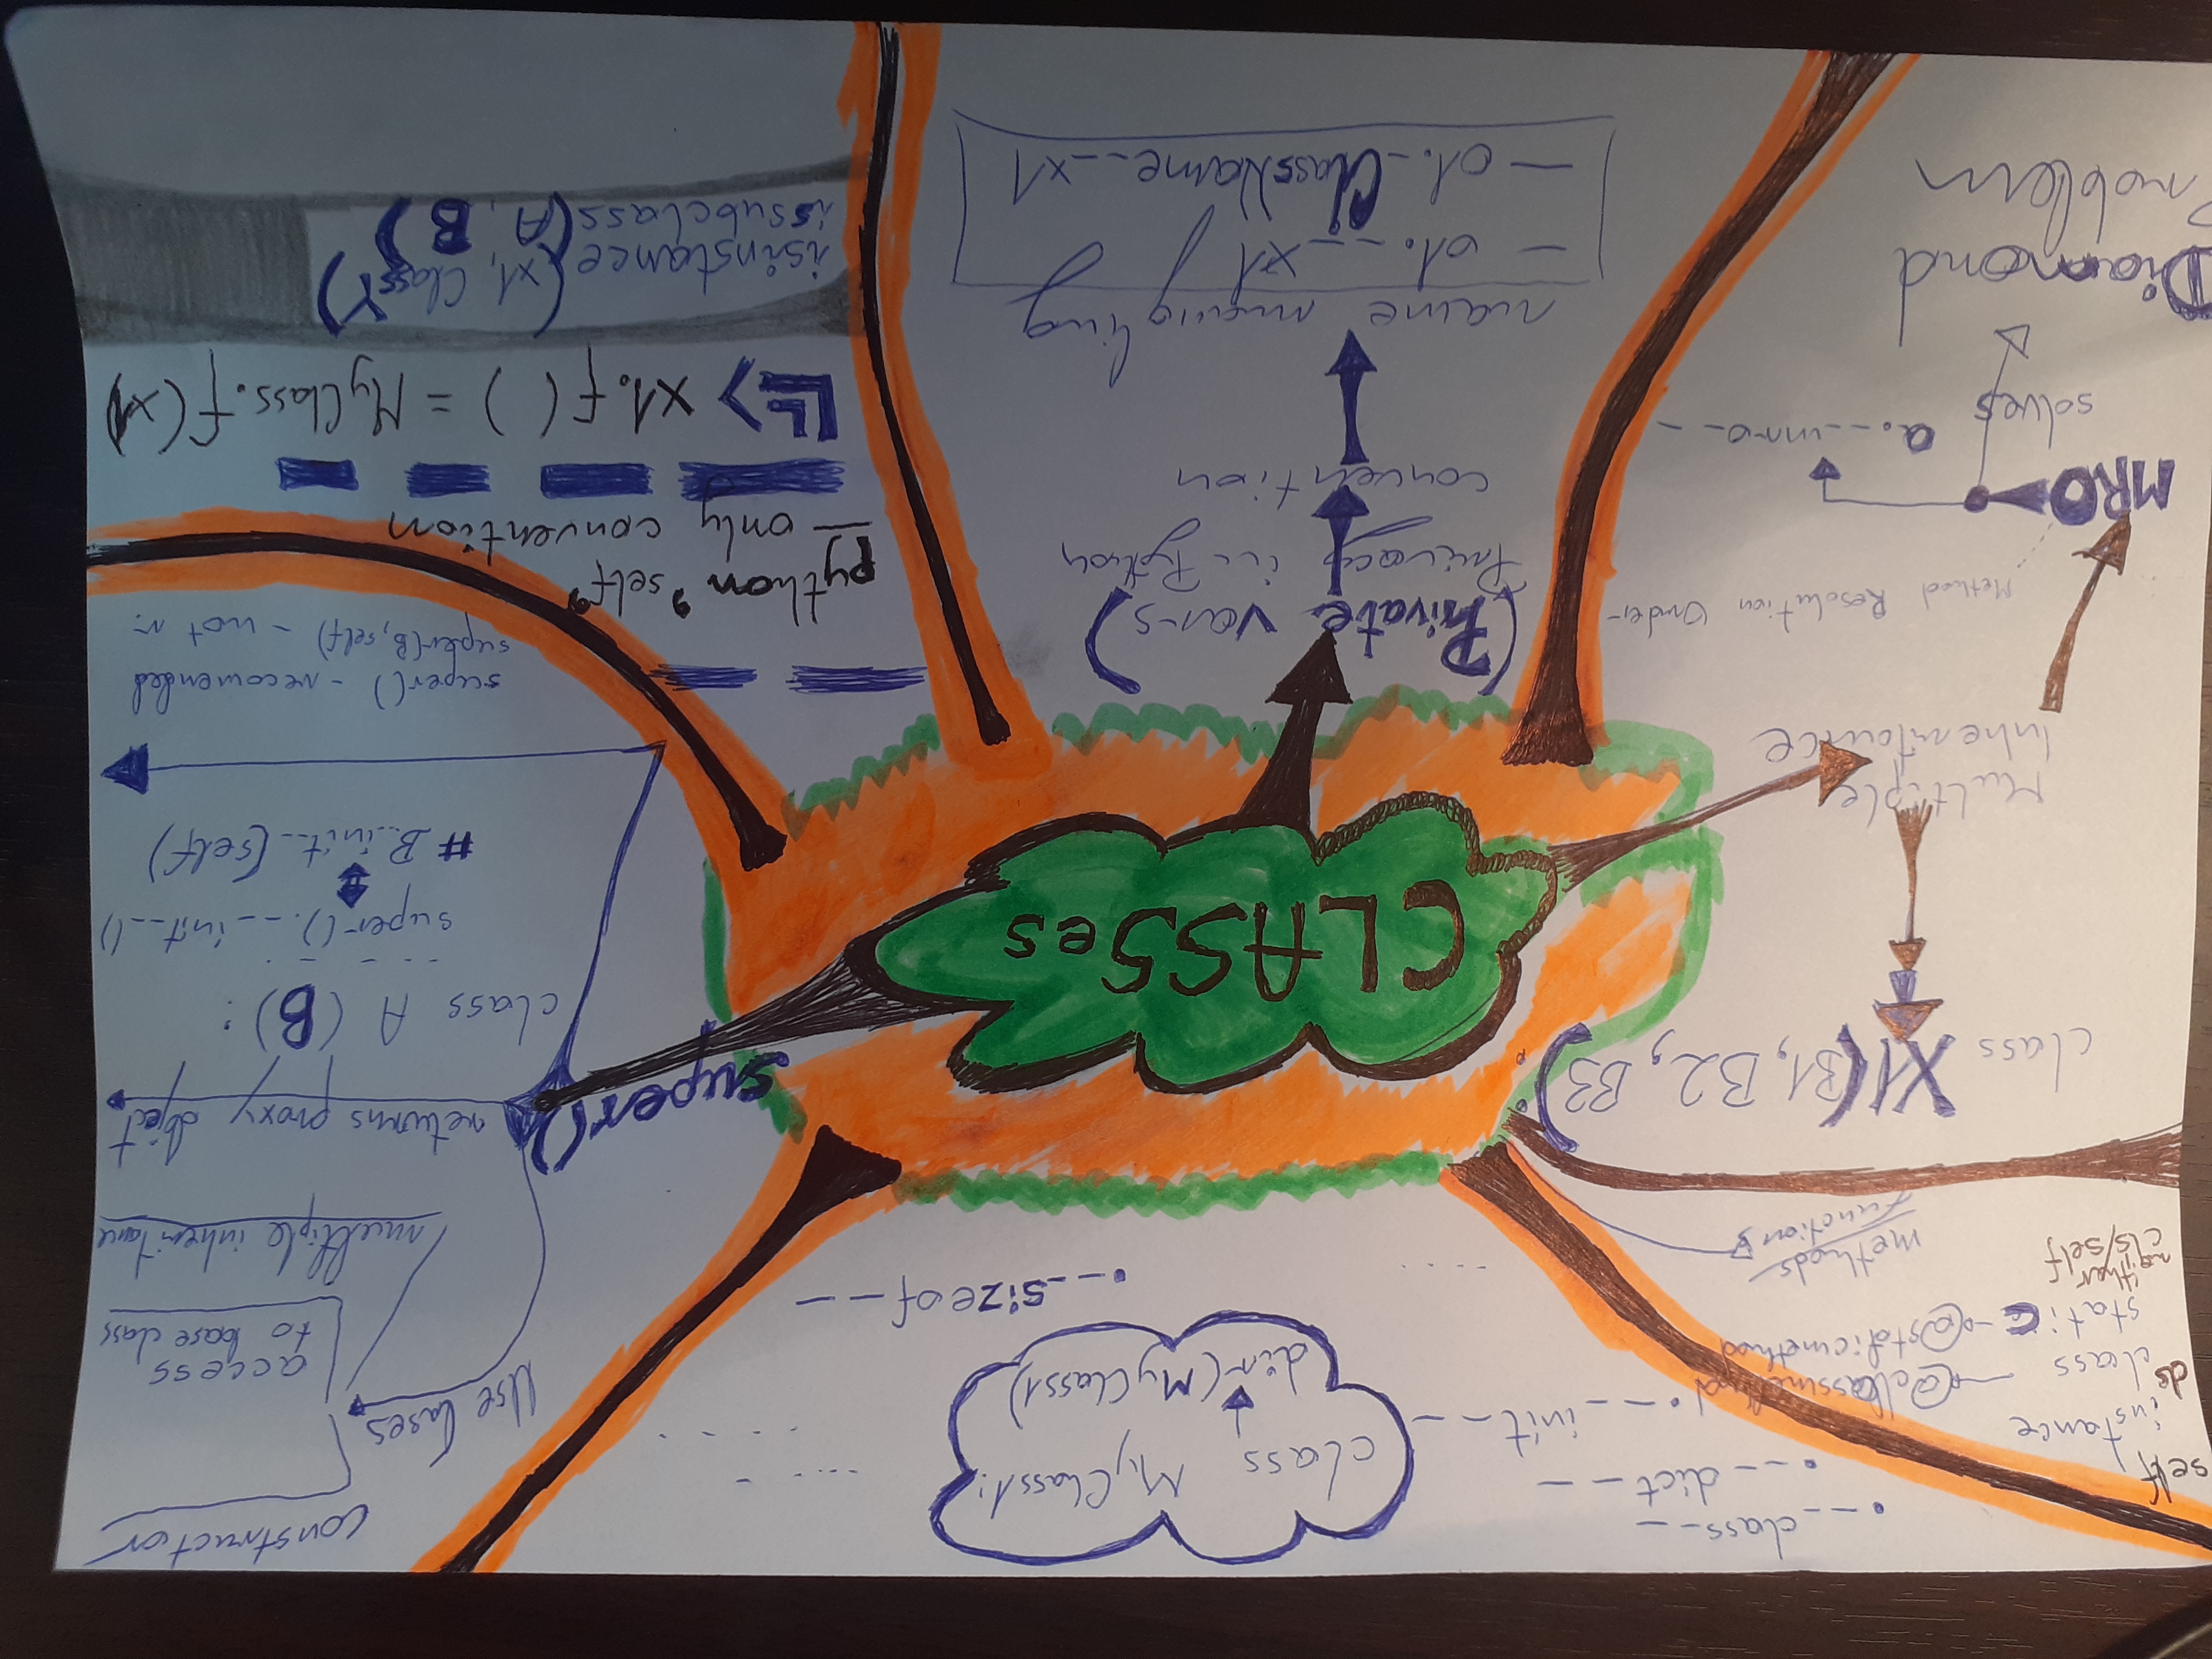 .__class__
.__dict__
.__init__
class MyClass1:
dir(MyClass1)
.__sizeof__
self
instance
cls
class → @classmethod
static → @staticmethod
neithar
cls/self
methods
functions
class X1(B1, B2, B3):
Multiple
Inheritance
Method Resolution Order
MRO
a.__mro__
solves
Diamond
Problem
CLASSes
(Private vars)
Privacy in Python
convention
name mangling
- o1.__x1
- o1._ClassName__x1
constructor
Use Cases
access
to base class
multiple inheritance
super()
returns proxy object
class A (B):
super().__init__()
# B__init__(self)
super() - recomended
super(B, self) - not r.
python 'self'
- only convention
x1.f( ) = MyClass.f(x1)
isinstance(x1, ClassY)
issubclass(A, B)